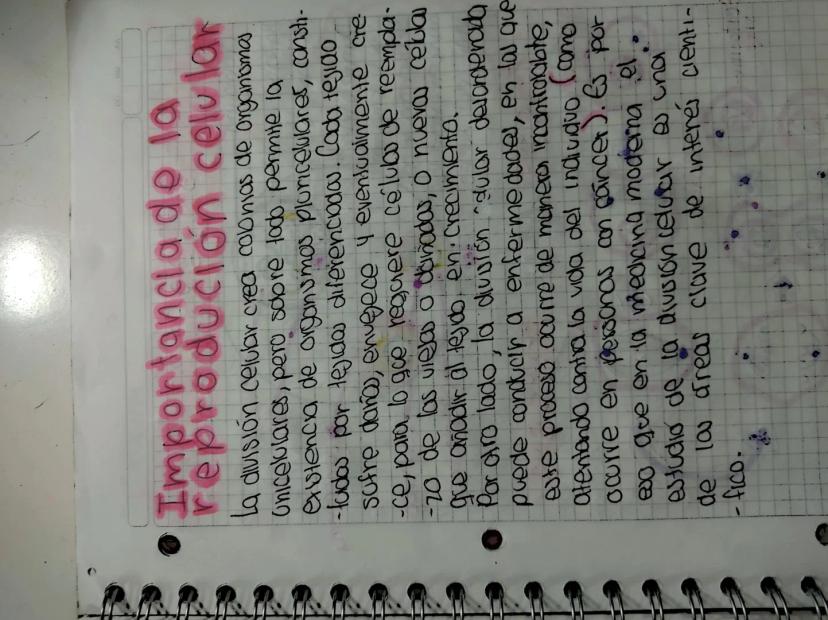 Importancia de la
reproducción celular
La división celular crea colonias de organismos
unicelulares, pero sobre todo permite la
existencia de organismos pluricelulares, consti-
-tuidos por tejidos diferenciados. Cada tejido
sufre daños, envejece y eventualmente cre
-ce, para lo que requiere células de reempla-
-zo de las viejas o dañadas, o nuevas células
que añadir al tejido en crecimiento.
Por otro lado, la división celular desordenada
puede conducir a enfermedades, en las que
este proceso ocurre de manera incontrolable,
atentando contra la vida del individuo (como
ocurre en personas con cáncer). Es por
eso que en la medicina moderna el
estudio de la división celular es una
de las áreas clave de interés cienti-
-fico.